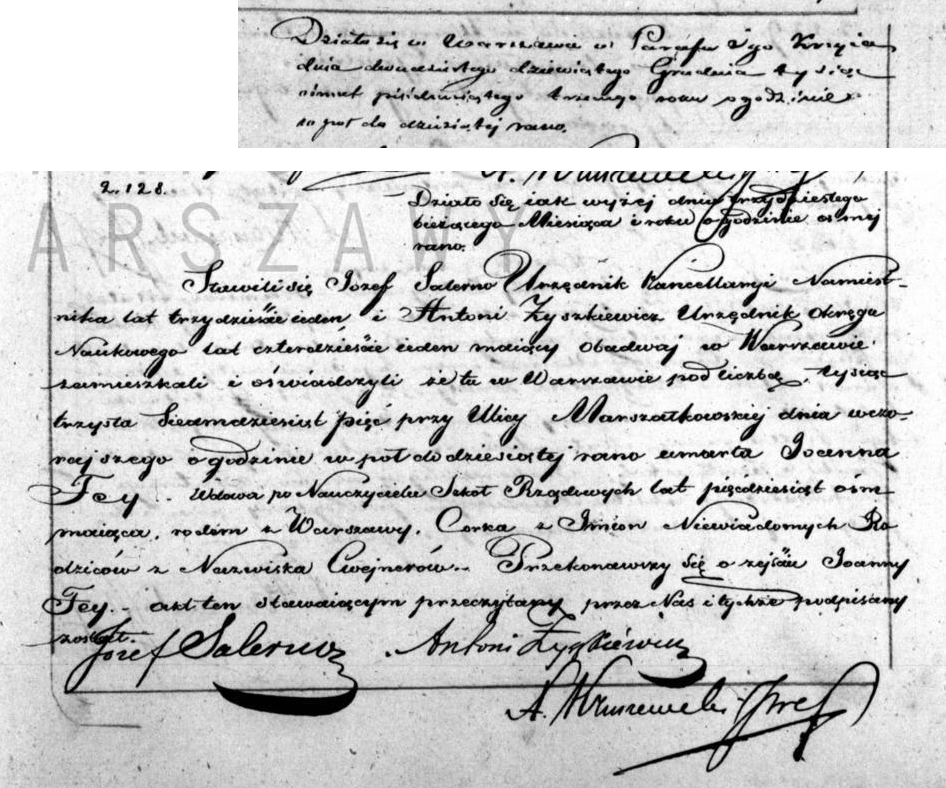 Działo się w Warszawie w Parafii Sgo Krzyża
dnia dwudziestego dziewiątego Grudnia tysiąc
ośmset pięćdziesiątego trzeciego roku o godzinie
w pół do dziesiątej rano.
2.128.
Działo się iak wyżej dnia trzydziestego
bieżącego Miesiąca i roku o godzinie osmej
rano.
ARSZAWY
Stawili się Jozef Salerno Urzędnik Kancellaryi Namiest-
nika lat trzydzieście ieden i Antoni Zyszkiewicz Urzędnik Okręgu
Naukowego lat czterdzieście ieden maiący obadwaj w Warszawie
zamieszkali i oświadczyli że tu w Warszawie pod liczbą tysiąc
trzysta Siedmdziesiąt pięć przy Ulicy Marszałkowskiej dnia wczo-
rajszego o godzinie w pół do dziesiątej rano umarła Joanna
Fey. Wdowa po Nauczycielu Szkół Rządowych lat pięćdziesiąt ośm
maiąca, rodem z Warszawy, Corka z Imion Niewiadomych Ro
dziców z Nazwiska Cwejnerów. Przekonawszy się o zejściu Joanny
Fey. akt ten stawaiącym przeczytany przez Nas i tychże podpisany
został.
Jozef Salerno Antoni Zyszkiewicz